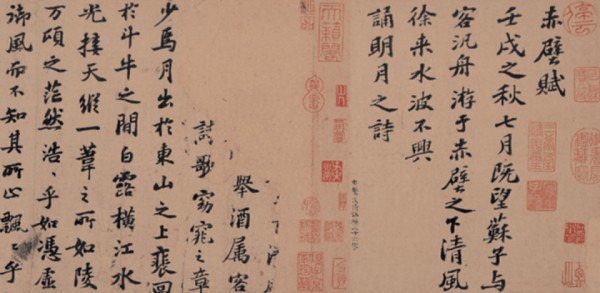 赤壁賦
壬戌之秋七月既望蘇子與
客汎舟游于赤壁之下清風
徐來水波不興
誦明月之詩
舉酒属客
詩歌窈窕之章
少焉月出於東山之上裵回
於斗牛之間白露橫江水
光接天縱一葦之所如陵
万頃之茫然浩〻乎如馮虛
御風而不知其所止飄〻乎